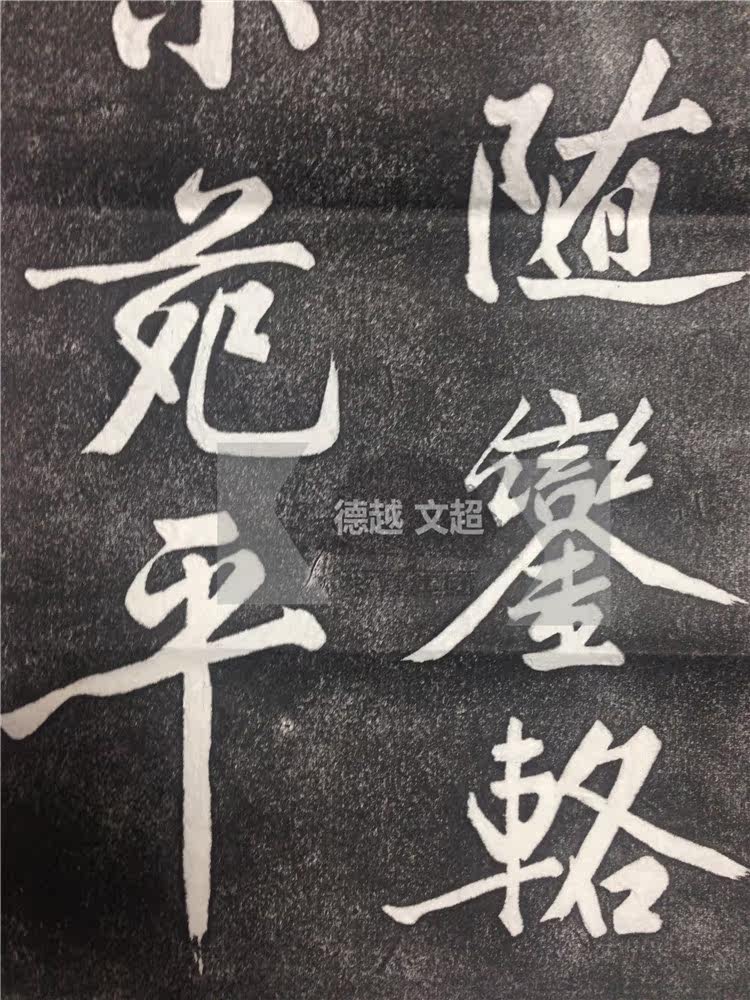 随鑾輅
苑平
德越 文超